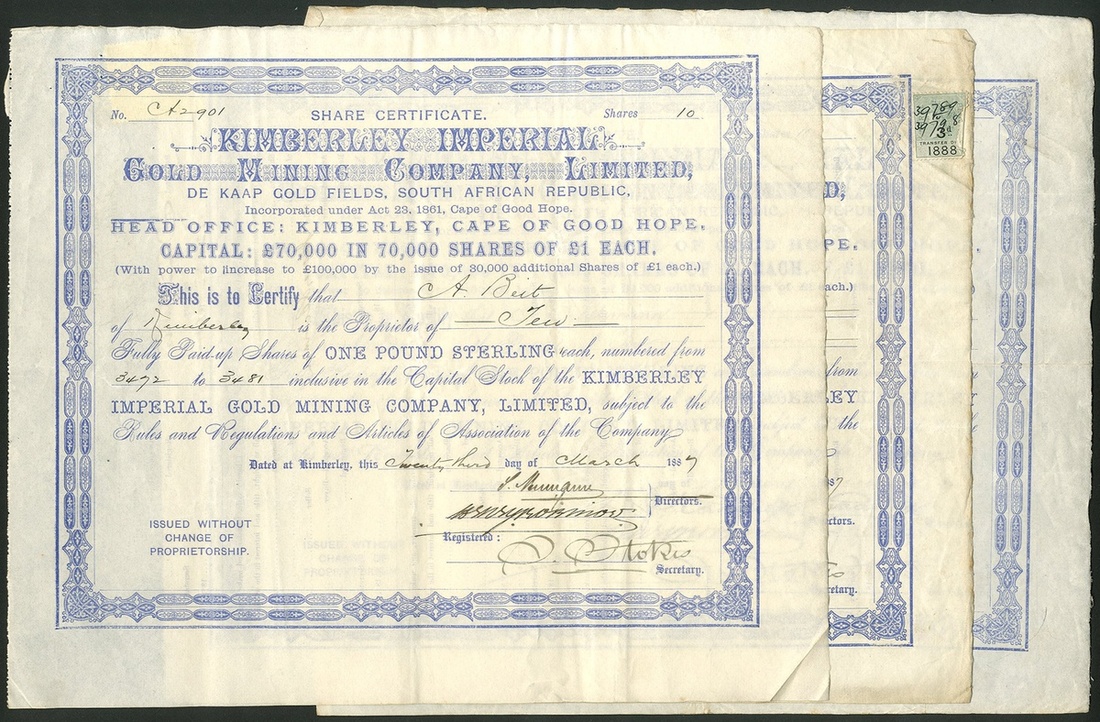 No. A2901 SHARE CERTIFICATE. Shares 10
KIMBERLEY IMPERIAL
GOLD MINING COMPANY, LIMITED,
DE KAAP GOLD FIELDS, SOUTH AFRICAN REPUBLIC,
Incorporated under Act 23, 1861, Cape of Good Hope.
HEAD OFFICE: KIMBERLEY, CAPE OF GOOD HOPE.
CAPITAL: £70,000 IN 70,000 SHARES OF £1 EACH.
(With power to iincrease to £100,000 by the issue of 30,000 additional Shares of £1 each.)
This is to Certify that A. Beit
of Kimberley is the Proprietor of Ten
Fully Paid-up Shares of ONE POUND STERLING each, numbered from
3472 to 3481 inclusive in the Capital Stock of the KIMBERLEY
IMPERIAL GOLD MINING COMPANY, LIMITED, subject to the
Rules and Regulations and Articles of Association of the Company
Dated at Kimberley, this Twenty third day of March 1887
Directors.
Registered:
Stokes
Secretary.
ISSUED WITHOUT
CHANGE OF
PROPRIETORSHIP.
D,
PE.
each.)
from
LEY
the
87
ctors.
cretary.
39789
3d
TRANSFER DY
1888